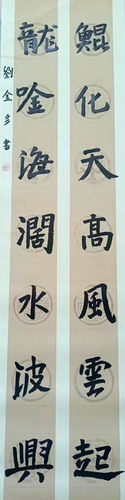 鯤化天高風雲起
龍唫海濶水波興
劉金多書